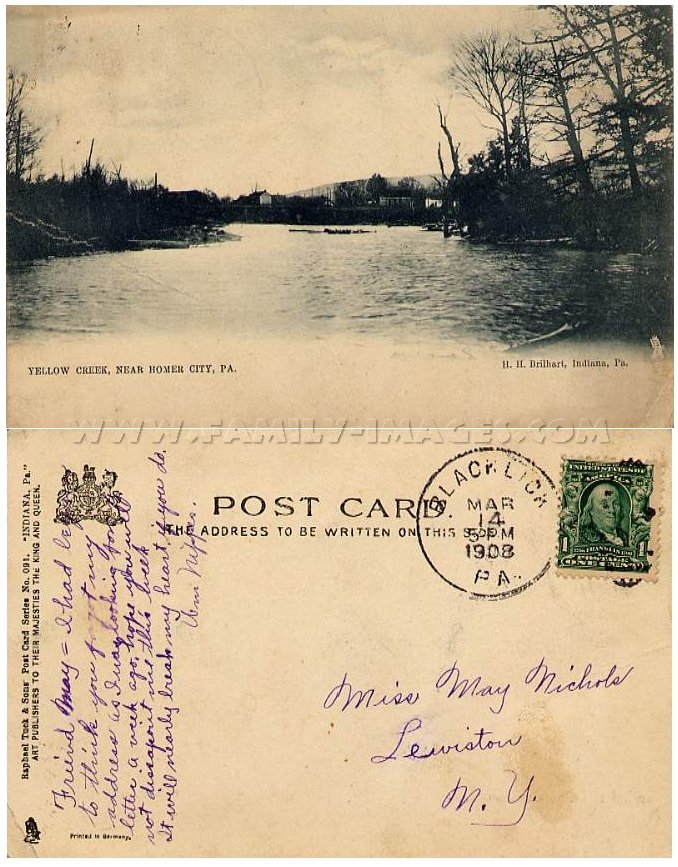 YELLOW CREEK, NEAR HOMER CITY, PA.
H. H. Brilhart, Indiana, Pa.
WWW.FAMILY-IMAGES.COM
Raphael Tuck & Sons' Post Card Series No. 091. "INDIANA, Pa."
ART PUBLISHERS TO THEIR MAJESTIES THE KING AND QUEEN.
Printed in Germany.
Friend May = I had be
to think you forgot my
address as I was looking for
letter a week ago, hope you will
not dissapoint me this week
It will nearly break my heart if you do.
POST CARD.
THE ADDRESS TO BE WRITTEN ON THIS SIDE
BLACK LICK
MAR
14
5 PM
1908
PA.
UNITED STATES OF
AMERICA
1
FRANKLIN
1
POSTAGE
ONE CENT
Miss May Nichols
Lewiston
N. Y.